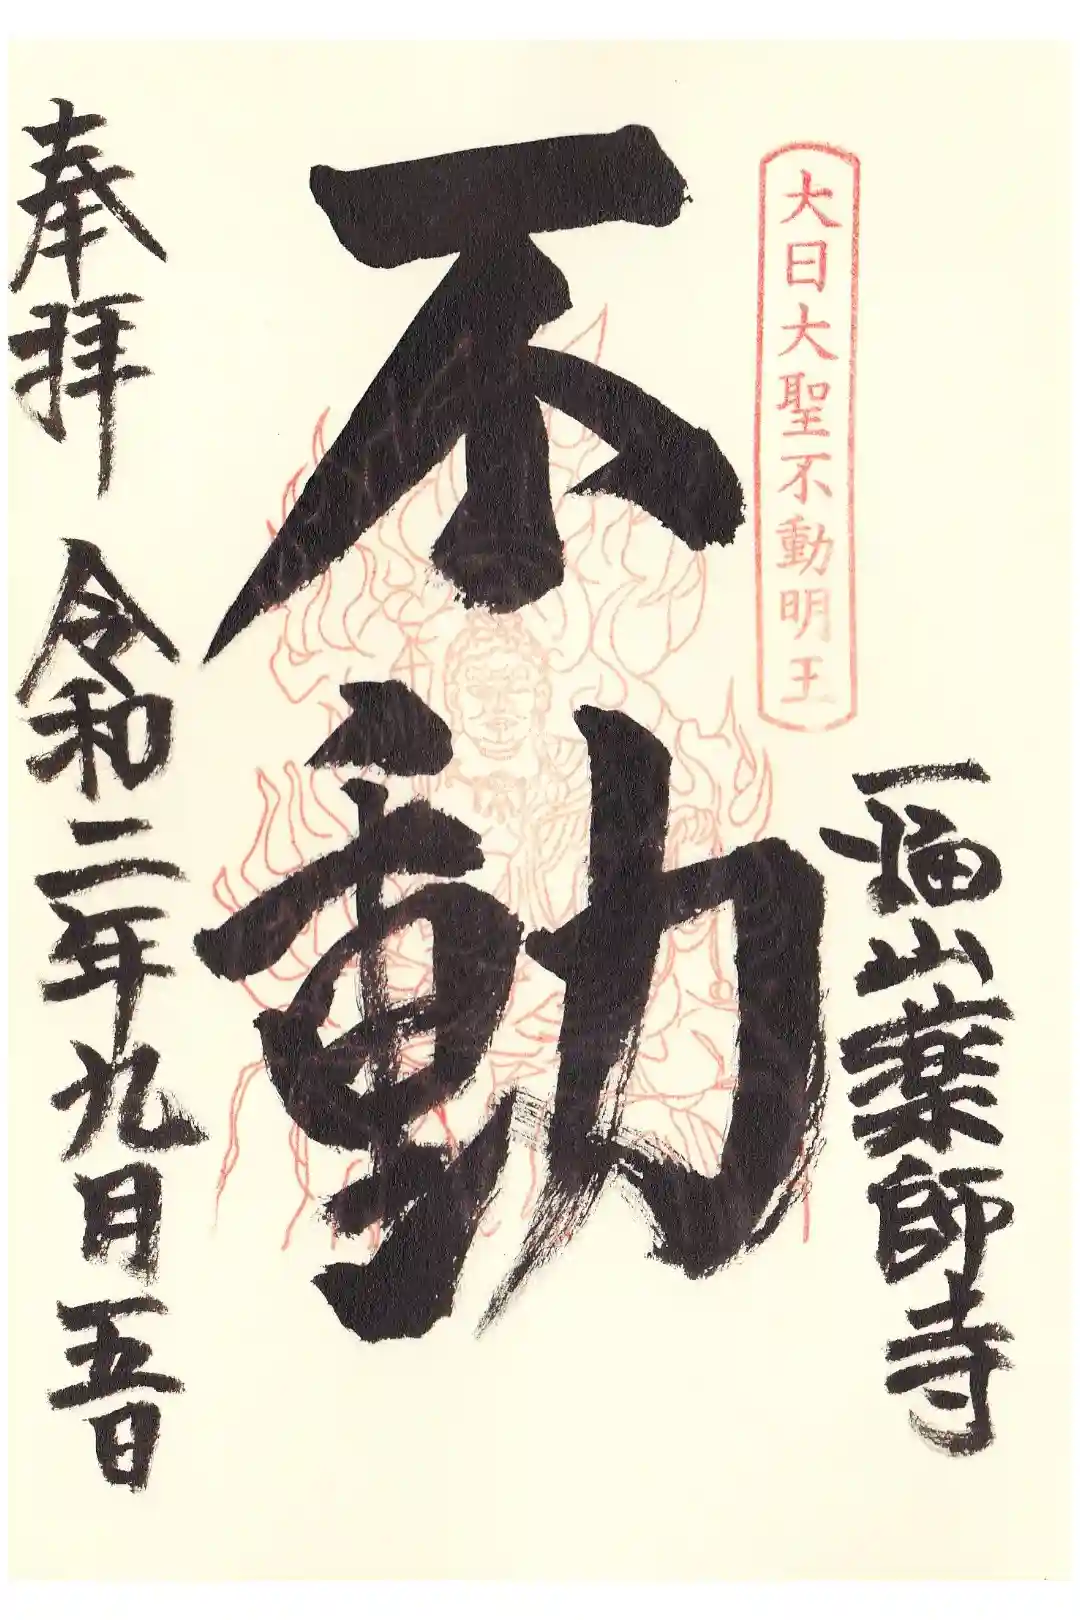 大日大聖不動明王
一福山薬師寺
不動
奉拝 令和二年九月五日